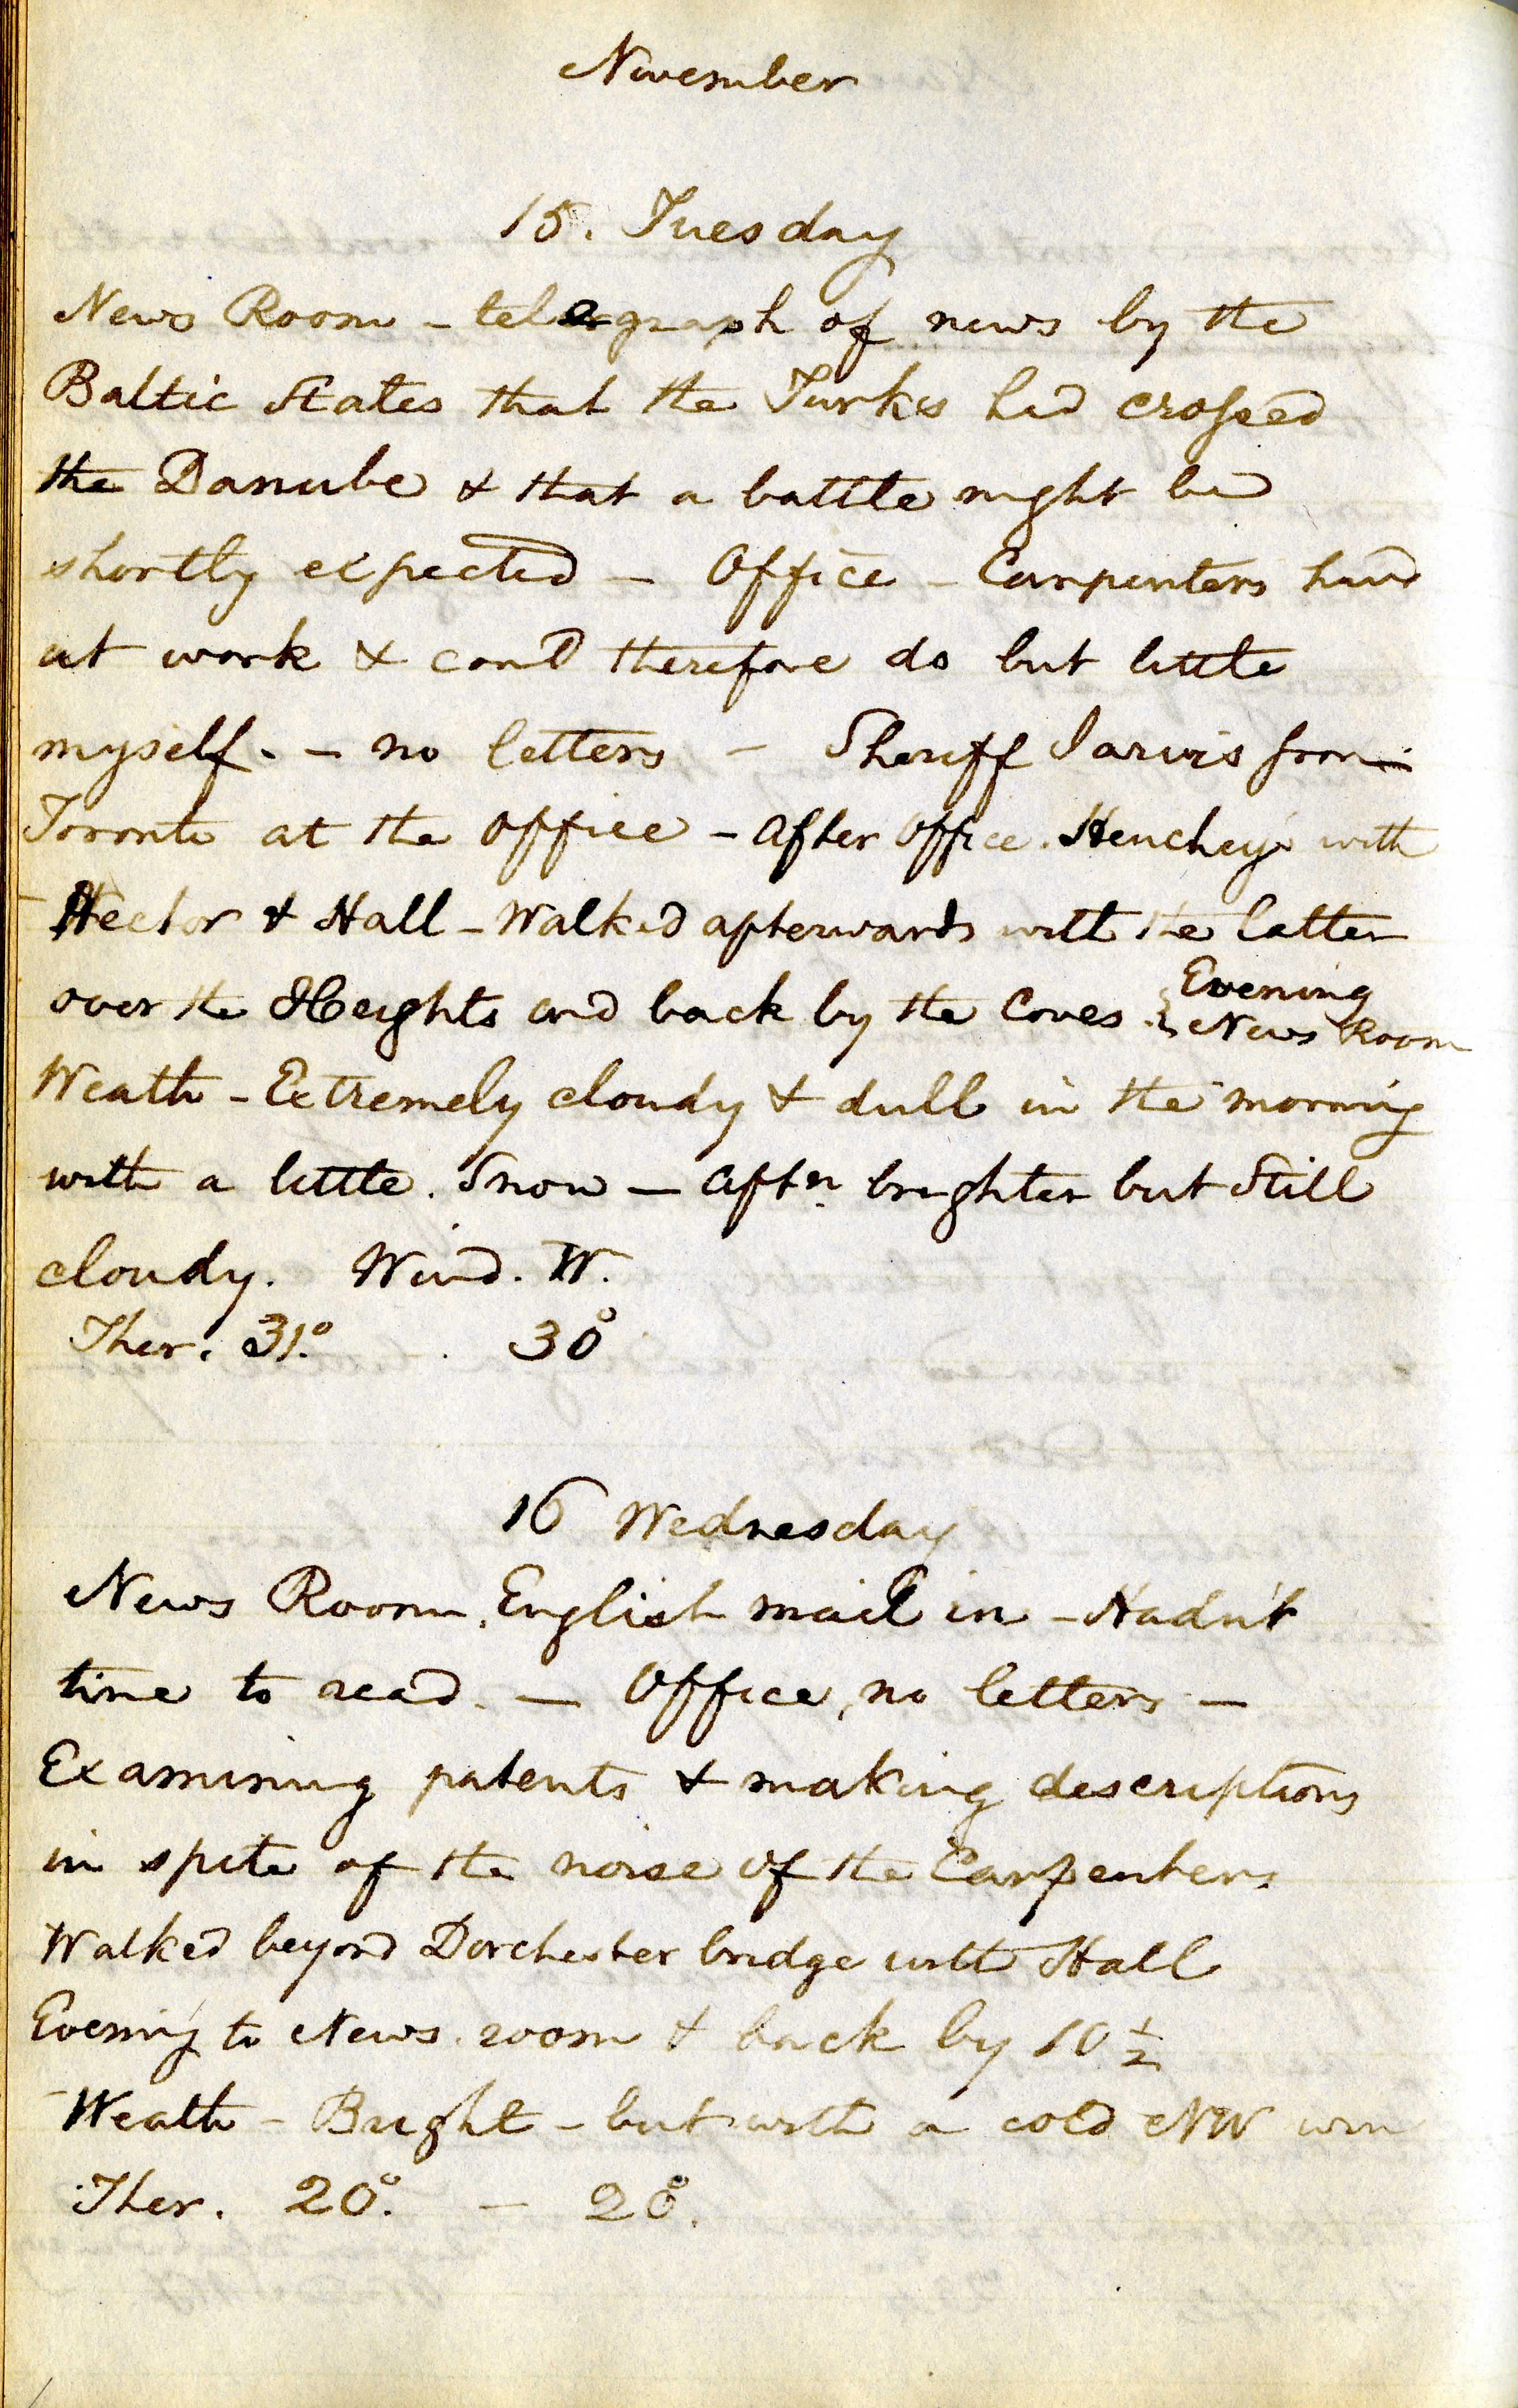 November
15. Tuesday
News Room - telegraph of news by the
Baltic States that the Turks had crossed
the Danube & that a battle might be
shortly expected - Office - Carpenters hard
at work & could therefore do but little
myself. - no letters - Sheriff Jarvis from
Toronto at the office - after office. Henchey's with
Hector & Hall - Walked afterwards with the latter
over the Heights and back by the Coves. { Evening
News Room
Weath - Extremely cloudy & dull in the morning
with a little. Snow - aftn. brighter but Still
cloudy. Wind. W.
Ther. 31.° 30°
16 Wednesday
News Room. English mail in - Hadn't
time to read. - Office, no letters -
Examining patents & making descriptions
in spite of the noise of the Carpenters.
Walked beyond Dorchester bridge with Hall
Evening to News room & back by 10 1/2
Weath - Bright - but with a cold NW win
Ther. 20°. - 20°.